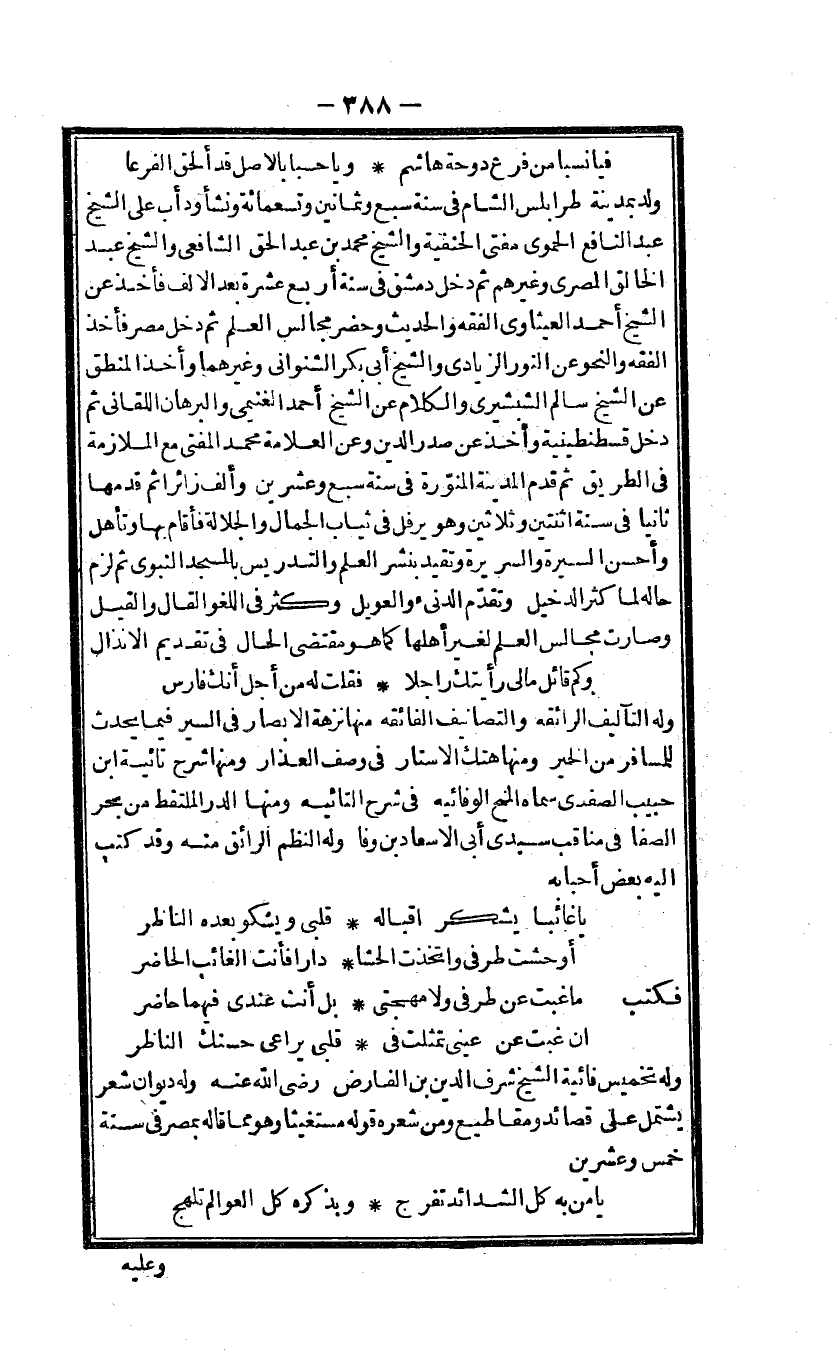 — ٣٨٨ —
فيا نسبا من فرع دوحة هاشم * ويا حسبا بالاصل قد ألحق الفرعا
ولد بمدينة طرابلس الشام فى سنة سبع وثمانين وتسعمائة ونشأ ودأب على الشيخ
عبد النافع الحموى مفتى الحنفية والشيخ محمد بن عبد الحق الشافعى والشيخ عبد
الخالق المصرى وغيرهم ثم دخل دمشق فى سنة أربع عشرة بعد الالف فأخذ عن
الشيخ أحمد العيثاوى الفقه والحديث وحضر مجالس العلم ثم دخل مصر فأخذ
الفقه والنحو عن النور الزيادى والشيخ أبى بكر الشنوانى وغيرهما وأخذ المنطق
عن الشيخ سالم الشبشيرى والكلام عن الشيخ أحمد الغنيمى والبرهان اللقانى ثم
دخل قسطنطينية وأخذ عن صدر الدين وعن العلامة محمد المفتى مع الملازمة
فى الطريق ثم قدم المدينة المنوّرة فى سنة سبع وعشرين وألف زائرا ثم قدمها
ثانيا فى سنة اثنتين وثلاثين وهو يرفل فى ثياب الجمال والجلالة فأقام بها وتأهل
وأحسن السيرة والسريرة وتقيد بنشر العلم والتدريس بالمسجد النبوى ثم لزم
حاله لما كثر الدخيل وتقدّم الدنىء والعويل وكثر فى اللغو القال والقيل
وصارت مجالس العلم لغير أهلها كما هو مقتضى الحال فى تقديم الانذال
وكم قائل مالى رأيتك راجلا * فقلت له من أجل أنك فارس
وله التآليف الرائقه والتصانيف الفائقه منها نزهة الابصار فى السير فيما يحدث
للمسافر من الخير ومنها هتك الاستار فى وصف العذار ومنها شرح تائية ابن
حبيب الصفدى سماه المنح الوفائيه فى شرح التائيه ومنها الدر الملتقط من بحر
الصفا فى مناقب سيدى أبى الاسعاد بن وفا وله النظم الرائق منه وقد كتب
اليه بعض أحبابه
يا غائبا يشكر اقباله * قلبى ويشكو بعده الناظر
أوحشت طرفى واتخذت الحشا * دارا فأنت الغائب الحاضر
فكتب ما غبت عن طرفى ولا مهجتى * بل أنت عندى فيهما حاضر
ان غبت عن عينى تمثلت فى * قلبى يراعى حسنك الناظر
وله تخميس فائية الشيخ شرف الدين بن الفارض رضى الله عنه وله ديوان شعر
يشتمل على قصائد ومقاطيع ومن شعره قوله مستغيثا وهو مما قاله بمصر فى سنة
خمس وعشرين
يا من به كل الشدائد تفرج * وبذكره كل العوالم تلهج
وعليه